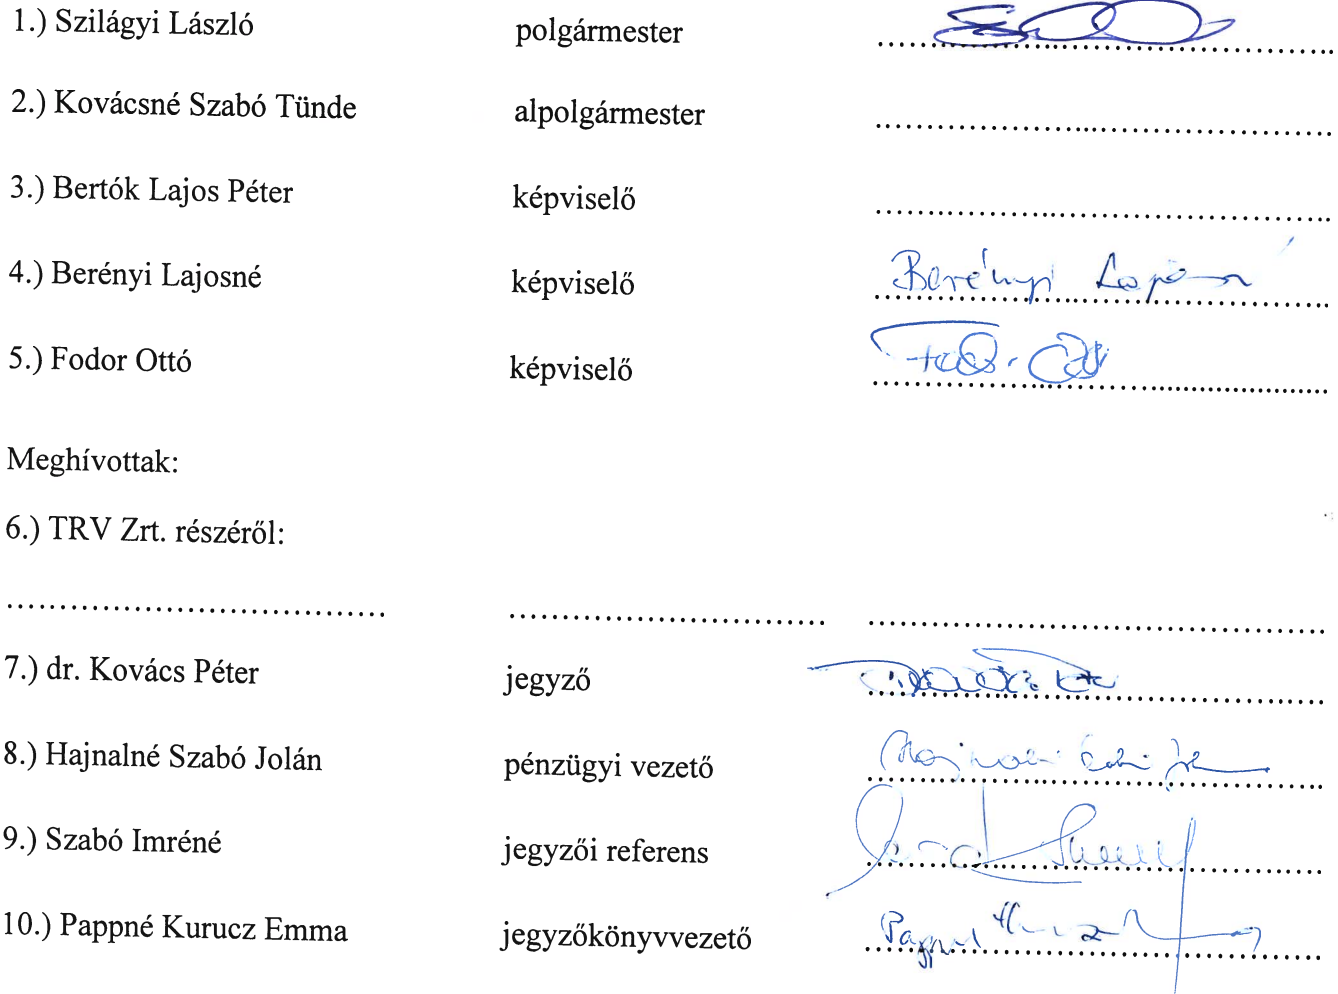 1.) Szilágyi László polgármester ........................................
2.) Kovácsné Szabó Tünde alpolgármester ........................................
3.) Bertók Lajos Péter képviselő ........................................
4.) Berényi Lajosné képviselő Berényi Lajosné
5.) Fodor Ottó képviselő ........................................
Meghívottak:
6.) TRV Zrt. részéről:
.................................... .............................. ........................................
7.) dr. Kovács Péter jegyző ........................................
8.) Hajnalné Szabó Jolán pénzügyi vezető ........................................
9.) Szabó Imréné jegyzői referens ........................................
10.) Pappné Kurucz Emma jegyzőkönyvvezető ........................................